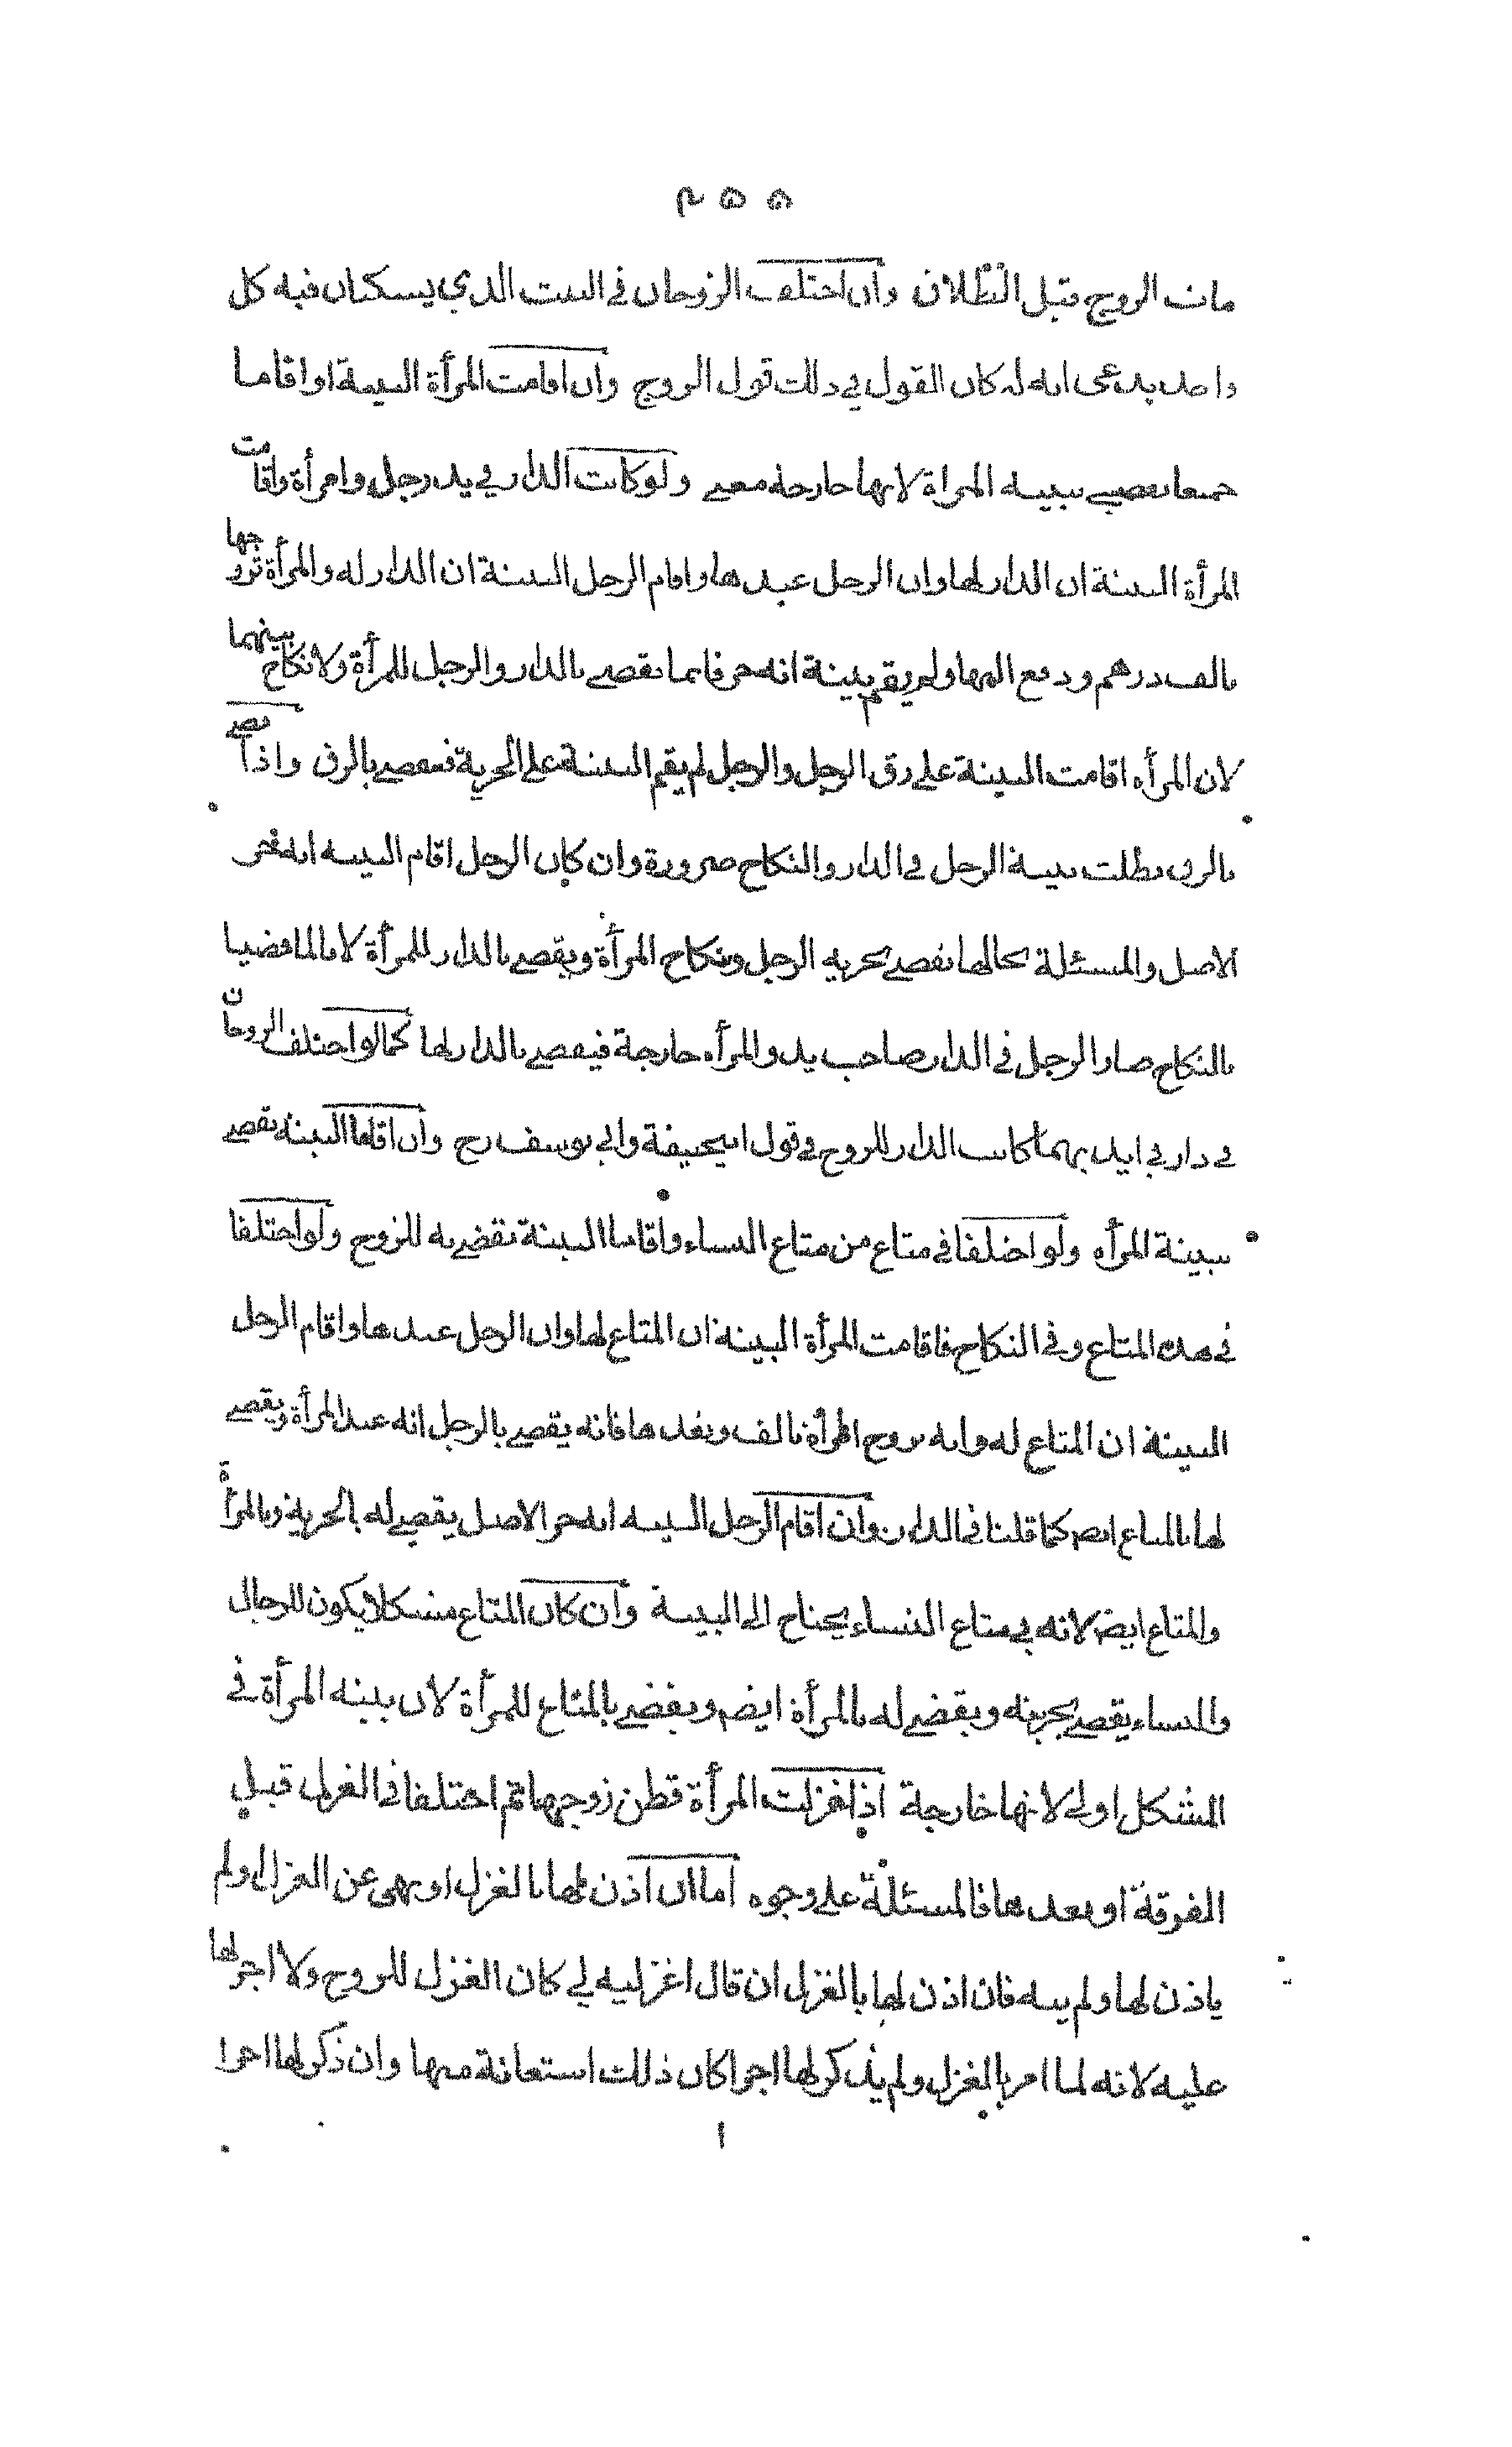 ٢٥٥
مات الزوج قبل الطلاق وان اختلف الزوجان في البيت الذي يسكنان فيه كل
واحد يدعى انه له كان القول في ذلك قول الزوج وان اقامت المرأة البينة او اقاما
جميعا يقضى ببينة المراة لانها خارجة معنى ولو كانت الدار في يد رجل وامرأة واقامت
المرأة البينة ان الدار لها وان الرجل عبدها واقام الرجل البينة ان الدار له والمرأة تزوجها
بالف درهم ودفع اليها ولم يقم بينة انه حر فانما يقضى بالدار والرجل للمرأة ولا نكاح بينهما
لان المرأه اقامت البينة على رق الرجل والرجل لم يقم البينة على الحرية فيقضى بالرق واذا قضى
بالرق بطلت بينة الرجل في الدار والنكاح ضرورة وان كان الرجل اقام البينه انه حر
الاصل والمسئلة بحالها يقضى بحريه الرجل ونكاح المرأة ويقضى بالدار للمرأة لانا لما قضينا
بالنكاح صار الرجل في الدار صاحب يد والمرأه خارجة فيقضى بالدار لها كما لو اختلف الزوجان
في دار في ايديهما كانت الدار للزوج في قول ابيحنيفة وابي يوسف رح وان اقاما البينه يقضى
ببينة المرأه ولو اختلفا في متاع من متاع النساء واقاما البينة يقضى به للزوج ولو اختلفا
في هذه المتاع وفي النكاح فاقامت المرأة البينة ان المتاع لها وان الرجل عبدها واقام الرجل
البينة ان المتاع له وانه تزوج المرأة بالف ونقدها فانه يقضى بالرجل انه عبد المرأة ويقضى
لها بالمتاع ايضم كما قلنا في الدار وان اقام الرجل البينه انه حر الاصل يقضى له بالحرية وبالمرأة
والمتاع ايضم لانه في متاع النساء يحتاج الى البينة وان كان المتاع مشكلا يكون للرجال
والنساء يقضى بحريته ويقضى له بالمرأة ايضم ويقضى بالمتاع للمرأة لان بينه المرأة في
المشكل اولى لانها خارجة اذا غزلت المرأة قطن زوجها ثم اختلفا في الغزل قبل
الفرقة او بعدها فالمسئلة على وجوه اما ان اذن لها بالغزل او نهى عن الغزل ولم
ياذن لها ولم ينه فان اذن لها بالغزل ان قال اغزليه لي كان الغزل للزوج ولا اجر لها
عليه لانه لما امر بالغزل ولم يذكر لها اجرا كان ذلك استعانة منها وان ذكر لها اجرا